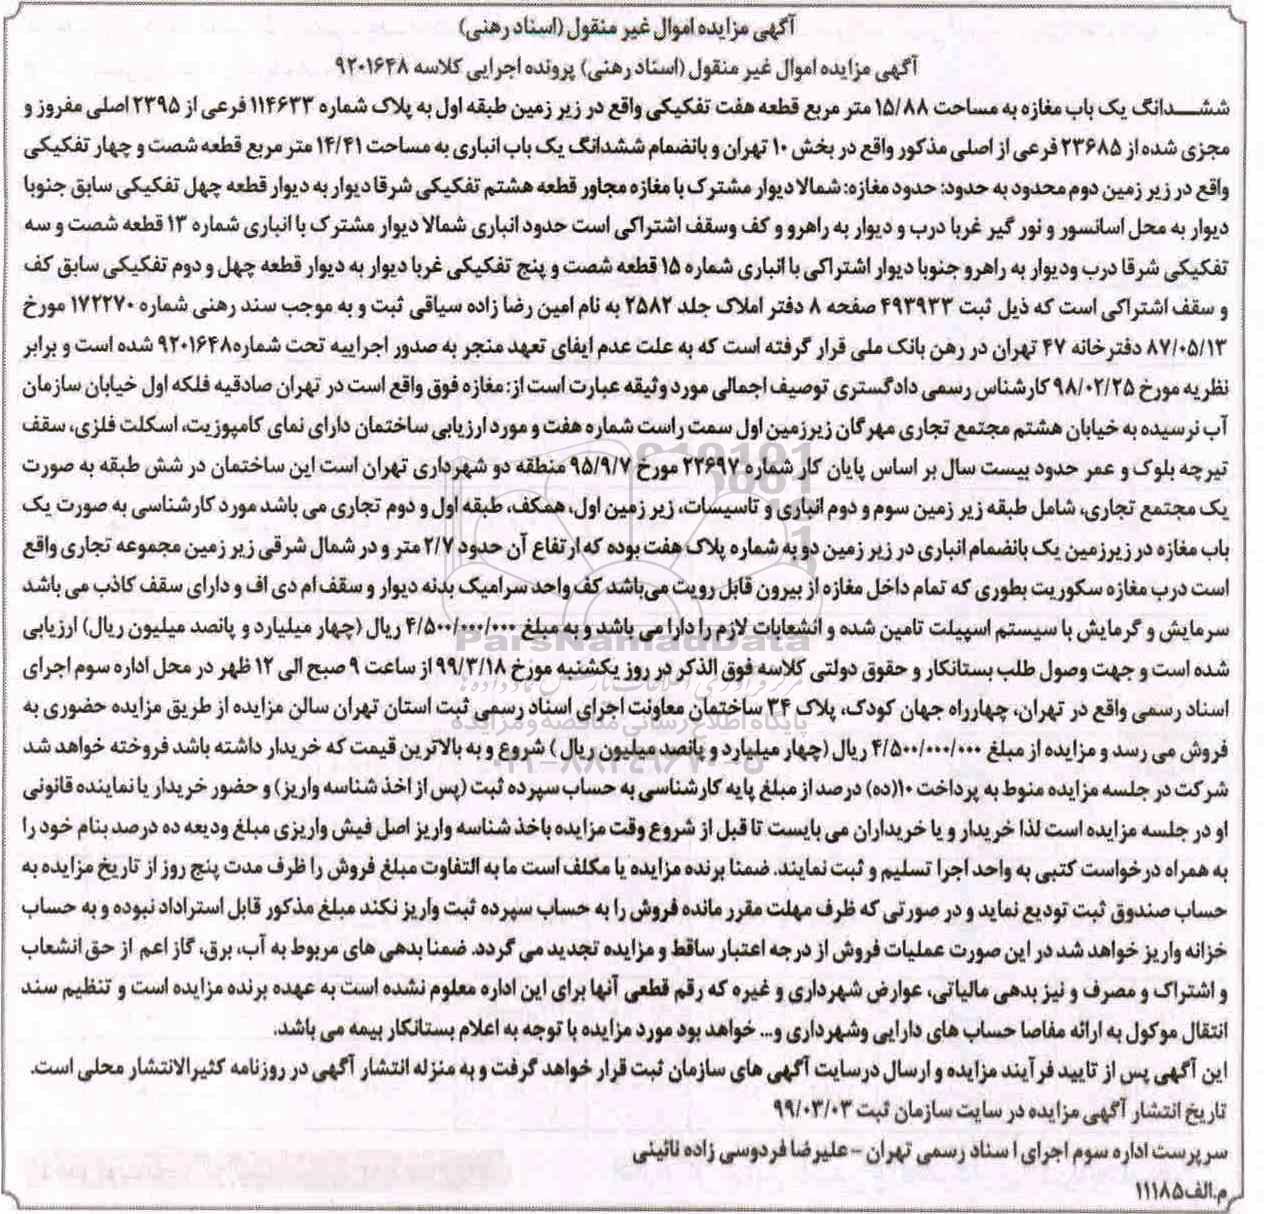 آگهی مزایده اموال غیر منقول (اسناد رهنی)
آگهی مزایده اموال غیر منقول (اسناد رهنی) پرونده اجرایی کلاسه ۹۲۰۱۶۴۸
ششدانگ یک باب مغازه به مساحت ۱۵/۸۸ متر مربع قطعه هفت تفکیکی واقع در زیر زمین طبقه اول به پلاک شماره ۱۱۴۶۳۳ فرعی از ۲۳۹۵ اصلی مفروز و
مجزی شده از ۲۳۶۸۵ فرعی از اصلی مذکور واقع در بخش ۱۰ تهران و بانضمام ششدانگ یک باب انباری به مساحت ۱۴/۴۱ متر مربع قطعه شصت و چهار تفکیکی
واقع در زیر زمین دوم محدود به حدود: حدود مغازه: شمالا دیوار مشترک با مغازه مجاور قطعه هشتم تفکیکی شرقا دیوار به دیوار قطعه چهل تفکیکی سابق جنوبا
دیوار به محل اسانسور و نور گیر غربا درب و دیوار به راهرو و کف وسقف اشتراکی است حدود انباری شمالا دیوار مشترک با انباری شماره ۱۳ قطعه شصت و سه
تفکیکی شرقا درب ودیوار به راهرو جنوبا دیوار اشتراکی با انباری شماره ۱۵ قطعه شصت و پنج تفکیکی غربا دیوار به دیوار قطعه چهل و دوم تفکیکی سابق کف
و سقف اشتراکی است که ذیل ثبت ۴۹۳۹۳۳ صفحه ۸ دفتر املاک جلد ۲۵۸۲ به نام امین رضا زاده سیاقی ثبت و به موجب سند رهنی شماره ۱۷۲۲۷۰ مورخ
۸۷/۰۵/۱۳ دفترخانه ۴۷ تهران در رهن بانک ملی قرار گرفته است که به علت عدم ایفای تعهد منجر به صدور اجراییه تحت شماره۹۲۰۱۶۴۸ شده است و برابر
نظریه مورخ ۹۸/۰۲/۲۵ کارشناس رسمی دادگستری توصیف اجمالی مورد وثیقه عبارت است از: مغازه فوق واقع است در تهران صادقیه فلکه اول خیابان سازمان
آب نرسیده به خیابان هشتم مجتمع تجاری مهرگان زیرزمین اول سمت راست شماره هفت و مورد ارزیابی ساختمان دارای نمای کامپوزیت، اسکلت فلزی، سقف
تیرچه بلوک و عمر حدود بیست سال بر اساس پایان کار شماره ۲۲۶۹۷ مورخ ۹۵/۹/۷ منطقه دو شهرداری تهران است این ساختمان در شش طبقه به صورت
یک مجتمع تجاری، شامل طبقه زیر زمین سوم و دوم انباری و تاسیسات، زیر زمین اول، همکف، طبقه اول و دوم تجاری می باشد مورد کارشناسی به صورت یک
باب مغازه در زیرزمین یک بانضمام انباری در زیر زمین دو به شماره پلاک هفت بوده که ارتفاع آن حدود ۲/۷ متر و در شمال شرقی زیر زمین مجموعه تجاری واقع
است درب مغازه سکوریت بطوری که تمام داخل مغازه از بیرون قابل رویت می‌باشد کف واحد سرامیک بدنه دیوار و سقف ام دی اف و دارای سقف کاذب می باشد
سرمایش و گرمایش با سیستم اسپیلت تامین شده و انشعابات لازم را دارا می باشد و به مبلغ ۴/۵۰۰/۰۰۰/۰۰۰ ریال (چهار میلیارد و پانصد میلیون ریال) ارزیابی
شده است و جهت وصول طلب بستانکار و حقوق دولتی کلاسه فوق الذکر در روز یکشنبه مورخ ۹۹/۳/۱۸ از ساعت ۹ صبح الی ۱۲ ظهر در محل اداره سوم اجرای
اسناد رسمی واقع در تهران، چهارراه جهان کودک، پلاک ۳۴ ساختمان معاونت اجرای اسناد رسمی ثبت استان تهران سالن مزایده از طریق مزایده حضوری به
فروش می رسد و مزایده از مبلغ ۴/۵۰۰/۰۰۰/۰۰۰ ریال (چهار میلیارد و پانصد میلیون ریال ) شروع و به بالاترین قیمت که خریدار داشته باشد فروخته خواهد شد
شرکت در جلسه مزایده منوط به پرداخت ۱۰(ده) درصد از مبلغ پایه کارشناسی به حساب سپرده ثبت (پس از اخذ شناسه واریز) و حضور خریدار یا نماینده قانونی
او در جلسه مزایده است لذا خریدار و یا خریداران می بایست تا قبل از شروع وقت مزایده باخذ شناسه واریز اصل فیش واریزی مبلغ ودیعه ده درصد بنام خود را
به همراه درخواست کتبی به واحد اجرا تسلیم و ثبت نمایند. ضمنا برنده مزایده یا مکلف است ما به التفاوت مبلغ فروش را ظرف مدت پنج روز از تاریخ مزایده به
حساب صندوق ثبت تودیع نماید و در صورتی که ظرف مهلت مقرر مانده فروش را به حساب سپرده ثبت واریز نکند مبلغ مذکور قابل استراداد نبوده و به حساب
خزانه واریز خواهد شد در این صورت عملیات فروش از درجه اعتبار ساقط و مزایده تجدید می گردد. ضمنا بدهی های مربوط به آب، برق، گاز اعم از حق انشعاب
و اشتراک و مصرف و نیز بدهی مالیاتی، عوارض شهرداری و غیره که رقم قطعی آنها برای این اداره معلوم نشده است به عهده برنده مزایده است و تنظیم سند
انتقال موکول به ارائه مفاصا حساب های دارایی وشهرداری و... خواهد بود مورد مزایده با توجه به اعلام بستانکار بیمه می باشد.
این آگهی پس از تایید فرآیند مزایده و ارسال درسایت آگهی های سازمان ثبت قرار خواهد گرفت و به منزله انتشار آگهی در روزنامه کثیرالانتشار محلی است.
تاریخ انتشار آگهی مزایده در سایت سازمان ثبت ۹۹/۰۳/۰۳
سرپرست اداره سوم اجرای ا سناد رسمی تهران - علیرضا فردوسی زاده نائینی
م.الف۱۱۱۸۵
ParsNamadData
پایگاه اطلاع رسانی مناقصه و مزایده